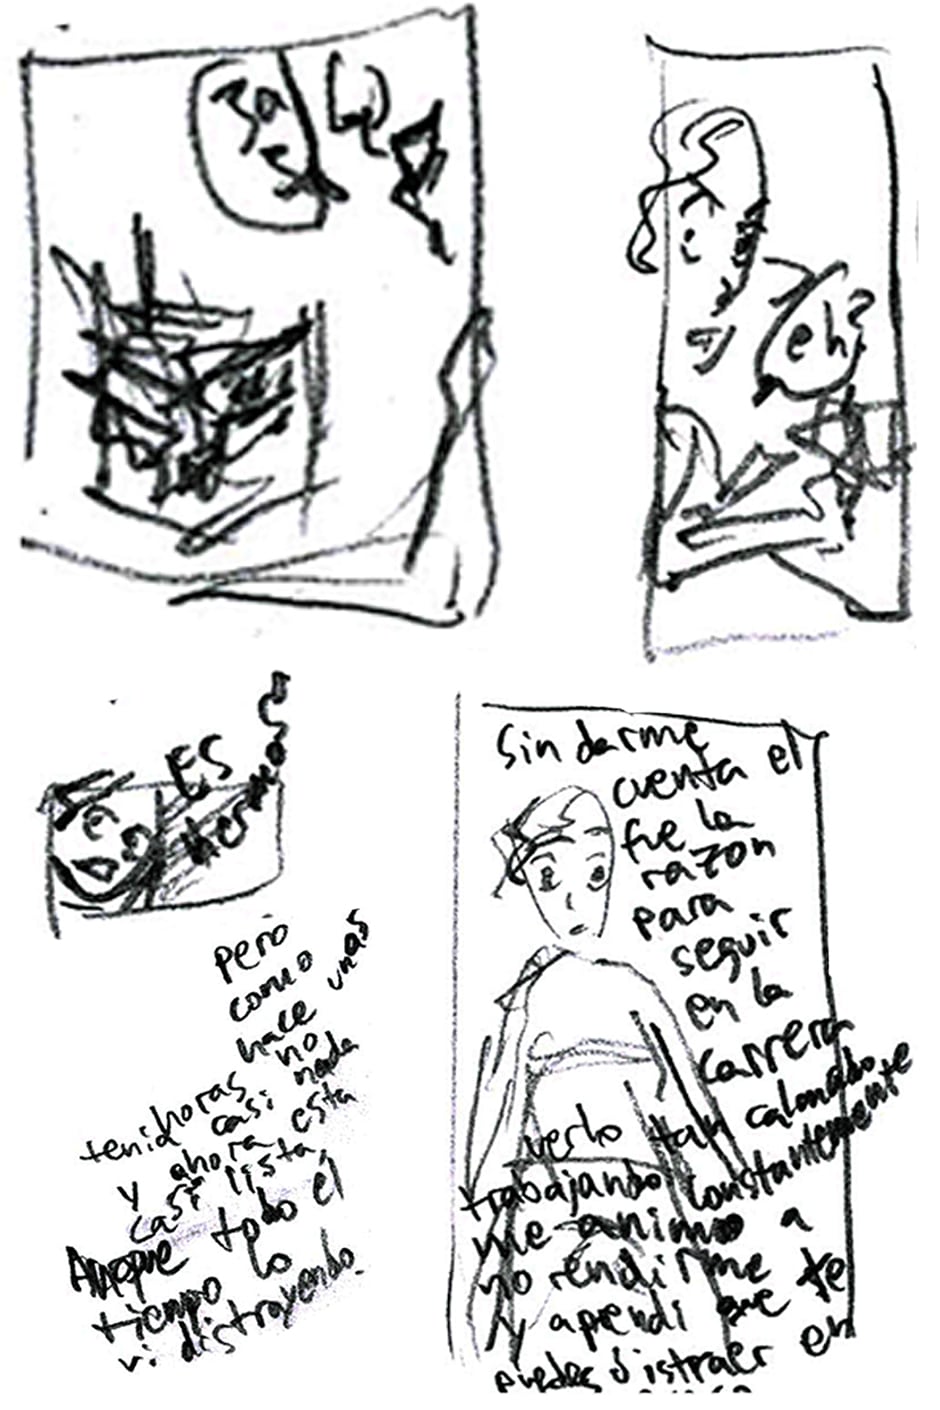 eh?
ES
hermoso
pero
como
hace unas
horas no
tenia casi nada
y ahora esta
casi lista,
Aunque todo el
tiempo lo
vi distrayendo.
Sin darme
cuenta el
fue la
razon
para
seguir
en la
carrera
verlo tan calmado
trabajando constantemente
me animo a
no rendirme
y aprendi que te
puedes distraer en